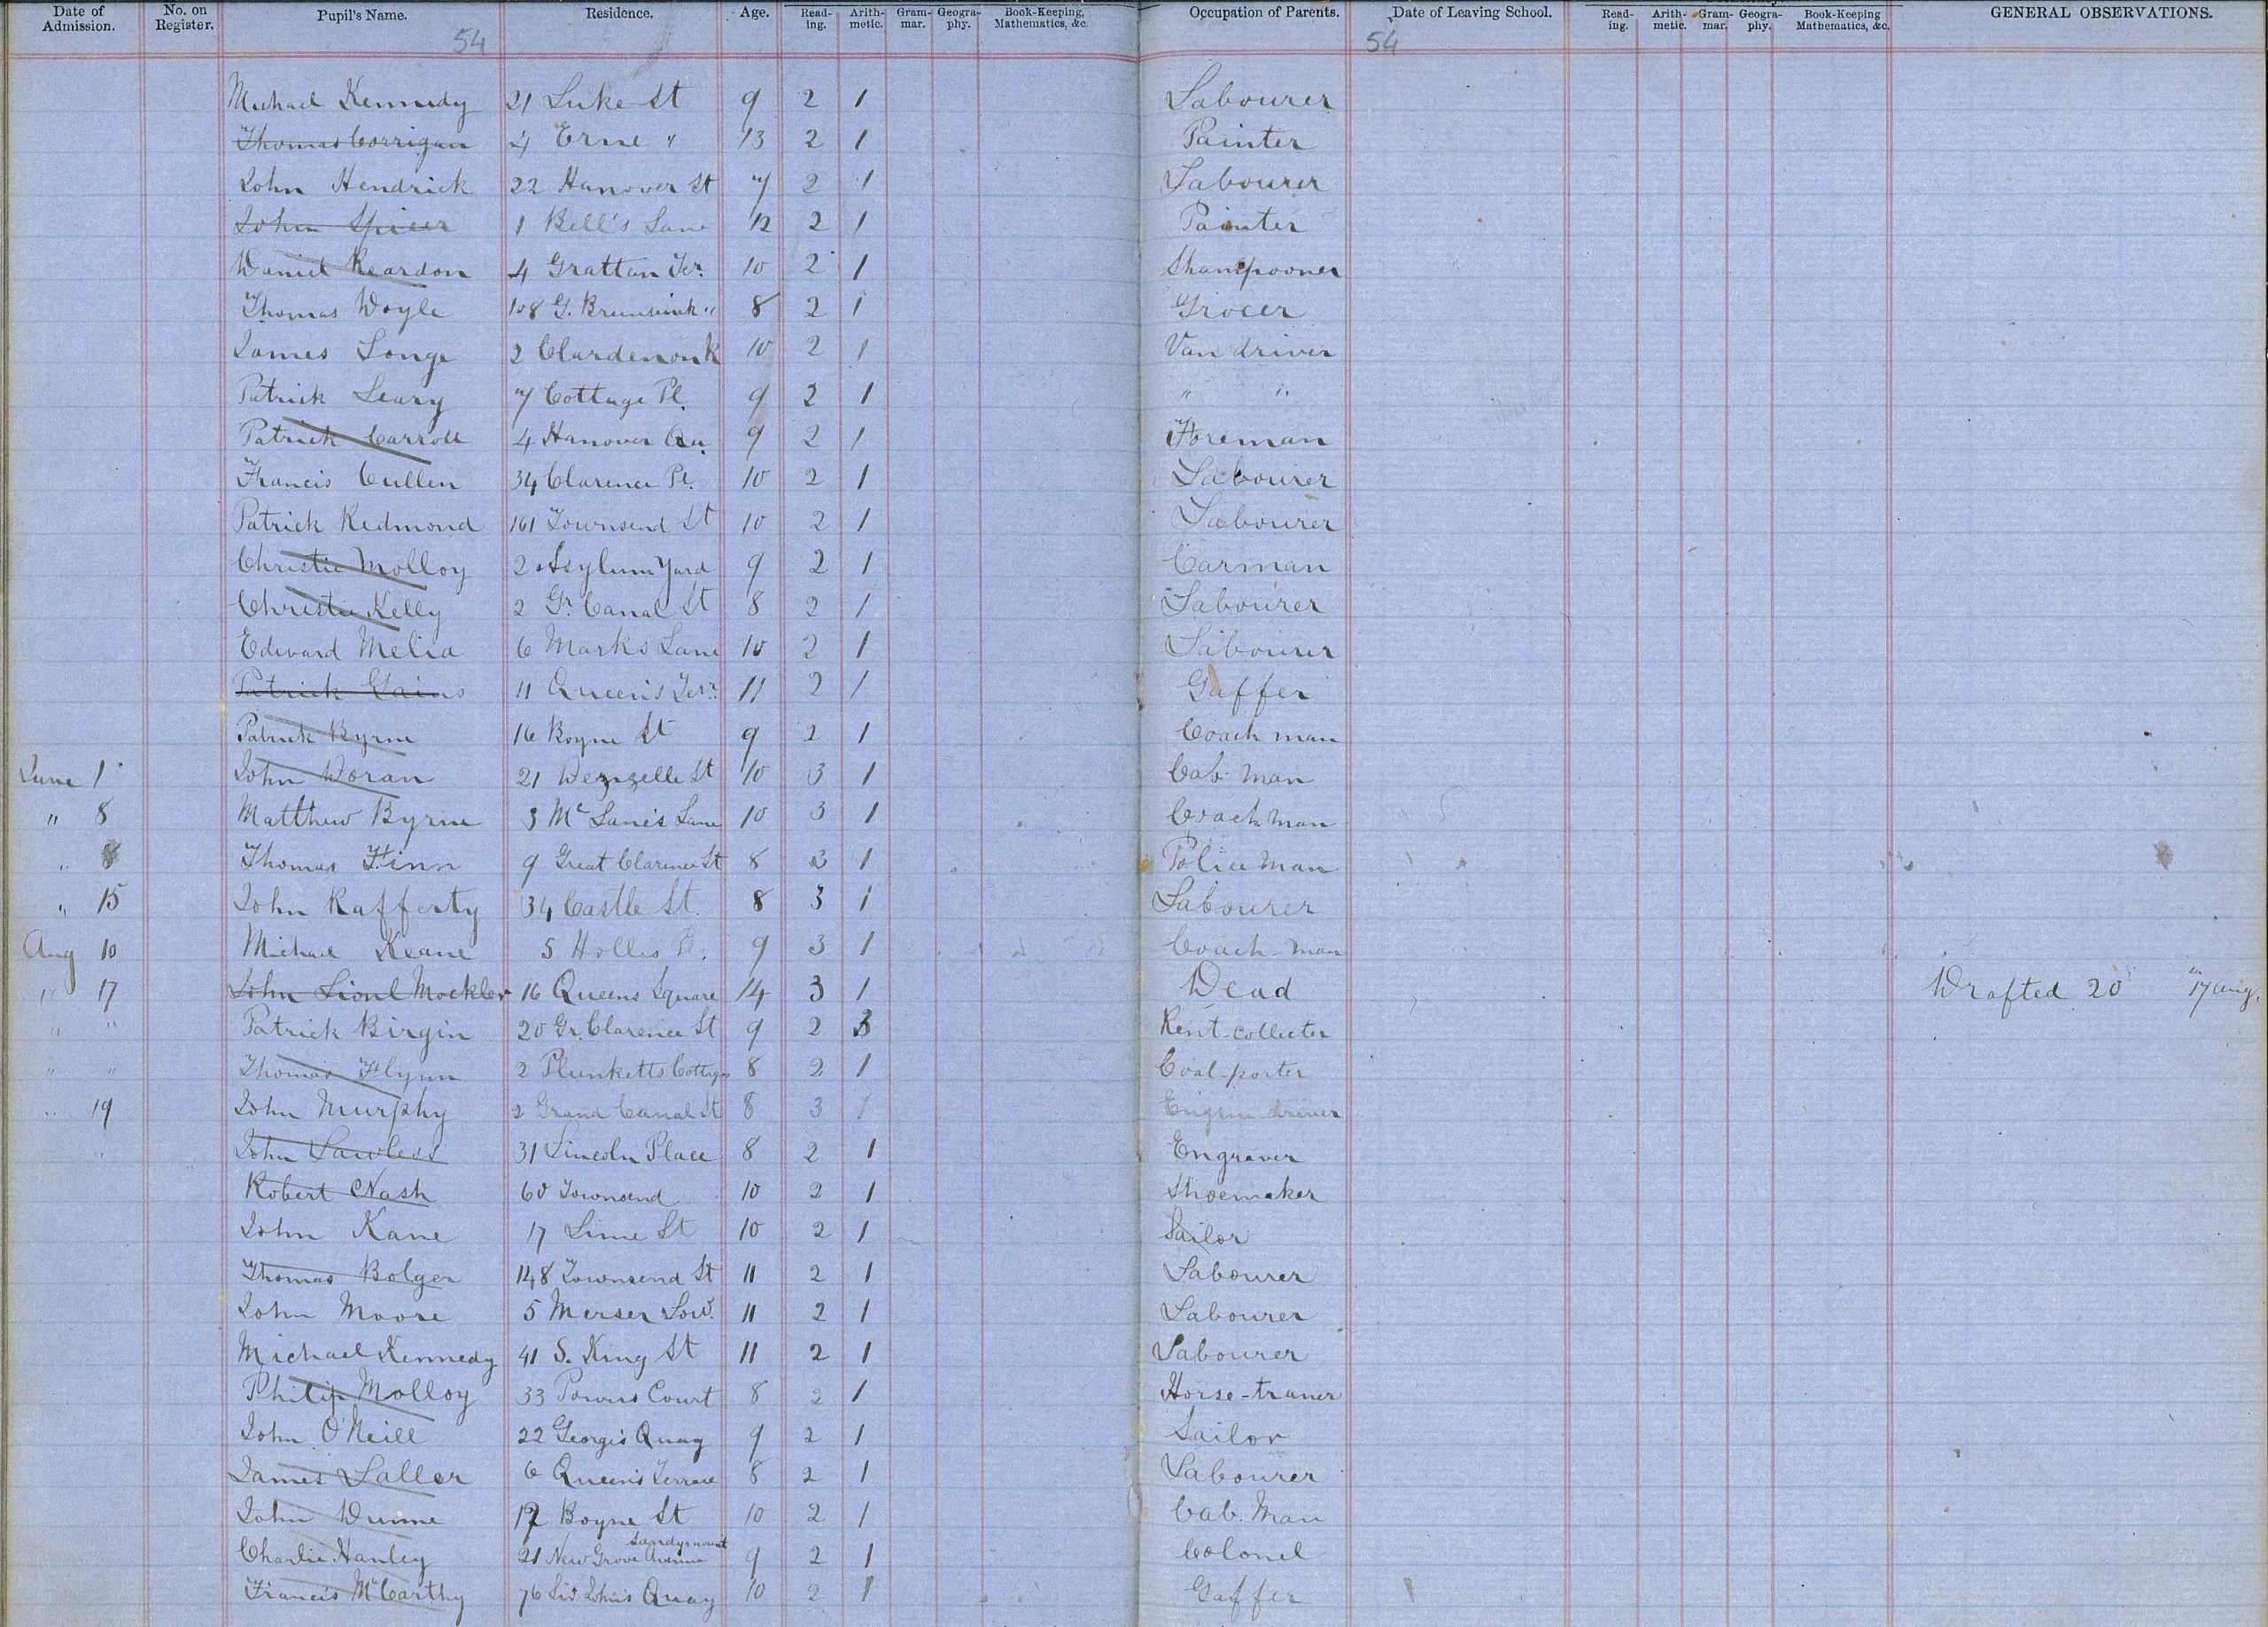 Date of Admission. No. on Register. Pupil's Name. Residence. Age. Read-ing. Arith-metic. Gram-mar. Geogra-phy. Book-Keeping, Mathematics, &c. Occupation of Parents. Date of Leaving School. Read-ing. Arith-metic. Gram-mar. Geogra-phy. Book-Keeping Mathematics, &c. GENERAL OBSERVATIONS.
54 54
Michael Kennedy 21 Luke St 9 2 1 Labourer
Thomas Corrigan 4 Erne " 13 2 1 Painter
John Hendrick 22 Hanover St 7 2 1 Labourer
John Spicer 1 Bell's Lane 12 2 1 Painter
Daniel Reardon 4 Grattan Ter. 10 2 1 Shampooner
Thomas Doyle 108 G. Brunswick " 8 2 1 Grocer
James Longe 2 10 2 1 Van driver
Patrick Leary 7 Cottage Pl. 9 2 1 " "
Patrick Carroll 4 Hanover Qu. 9 2 1 Foreman
Francis Cullen 34 Clarence Pl. 10 2 1 Labourer
Patrick Redmond 161 Townsend St 10 2 1 Labourer
Christie Molloy 2 Asylum Yard 9 2 1 Carman
Christie Kelly 2 Gr. Canal St 8 2 1 Labourer
Edward Melia 6 Marks Lane 10 2 1 Labourer
Patrick Gains 11 Queen's Terr. 11 2 1 Gaffer
Patrick Byrne 16 Boyne St 9 2 1 Coach man
June 1 John Doran 21 Denzzelle St 10 3 1 Cab man
" 8 Matthew Byrne 3 Mc Lane's Lane 10 3 1 Coach man
" 8 Thomas Finn 9 Great Clarence St 8 3 1 Police man
" 15 John Rafferty 34 Castle St. 8 3 1 Labourer
Aug 10 Michael Keane 5 Holles Pl. 9 3 1 Coach-man
" 17 John Lionl Mockler 16 Queens Square 14 3 1 Dead Drafted 20 17 Aug.
" " Patrick Birgin 20 Gr. Clarence St 9 2 3 Rent-collecter
" " Thomas Flynn 2 Plunketts Cottages 8 2 1 Coal-porter
" 19 John Murphy 2 Grand Canal St 8 3 1 Engine driver
" John Lawless 31 Lincoln Place 8 2 1 Engraver
Robert Nash 60 Townsend 10 2 1 Shoemaker
John Kane 17 Lime St 10 2 1 Sailor
Thomas Bolger 148 Townsend St 11 2 1 Labourer
John Moore 5 Merser Low. 11 2 1 Labourer
Michael Kennedy 41 S. King St 11 2 1 Labourer
Philip Molloy 33 Powers Court 8 2 1 Horse-traner
John O'Neill 22 George's Quay 9 2 1 Sailor
James Laller 6 Queen's Terrace 8 2 1 Labourer
John Dunne 12 Boyne St 10 2 1 Cab. Man
Charlie Hanley 21 New Grove Avenue Sandymount 9 2 1 Colonel
Francis McCarthy 76 Sir John's Quay 10 2 1 Gaffer